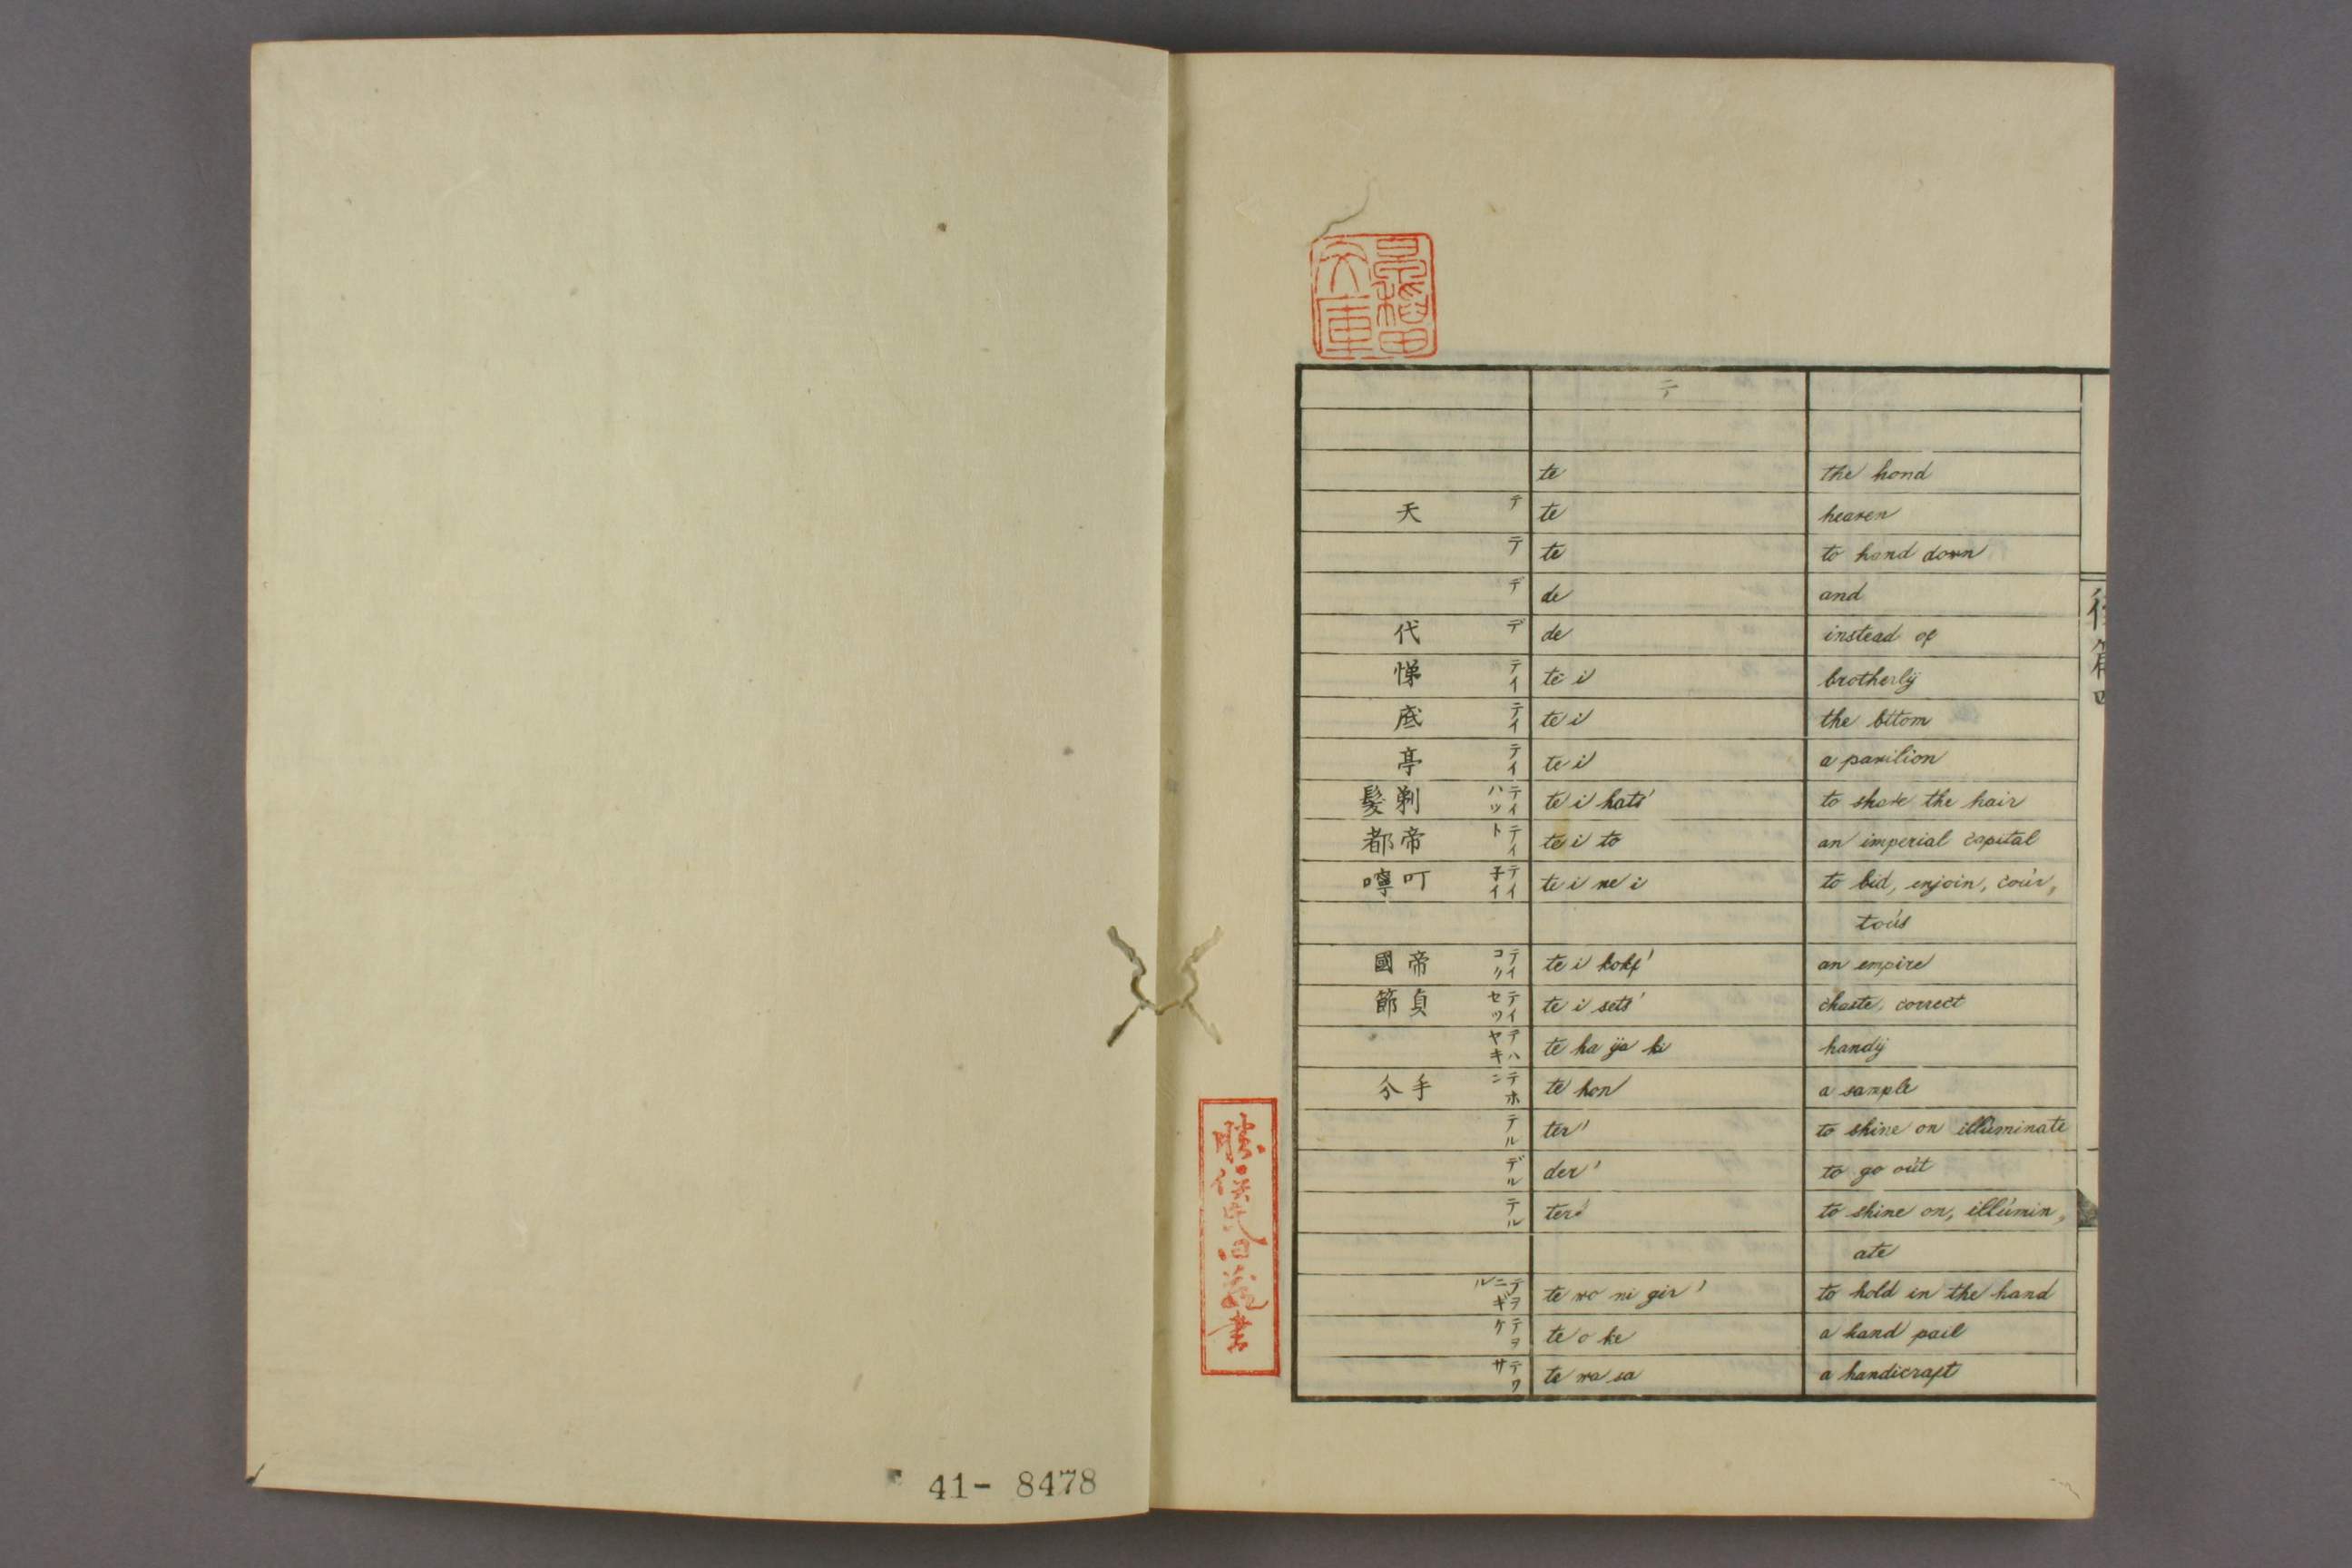 41- 8478
テ
te the hond
天 テ te heaven
テ te to hand down
デ de and
代 デ de instead of
悌 テイ te i brotherlÿ
底 テイ te i the bttom
亭 テイ te i a pavilion
髪剃 テイハツ te i hats' to shave the hair
都帝 テイト te i to an imperial capital
嚀叮 テイ子イ te i ne i to bid, enjoin, coúr,
toús
國帝 テイコク te i kokf' an empire
節貞 テイセツ te i sets' chaste, correct
テハヤキ te ha ÿa ki handÿ
分手 テホン te hon a sample
テル ter' to shine on illúminate
デル der' to go oút
テル ter' to shine on, illúmin,
ate
テヲニギル te wo ni gir' to hold in the hand
テヲケ te o ke a hand pail
テワサ te wa sa a handicraft